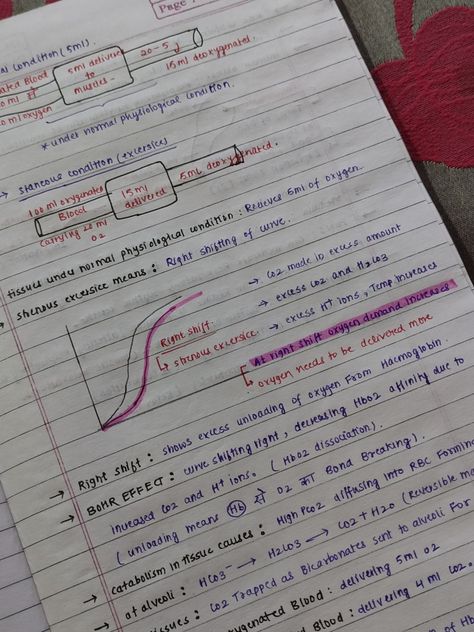 Page
al condition (5ml).
ated Blood
5ml delivered to muscles
20-5
15ml deoxygenated.
ml oxygen
* under normal physiological condition.
→ staneous condition (exercise)
100 ml oxygenated Blood
carrying 20 ml O2
15ml delivered
5ml deoxygenated.
tissues under normal physiological condition: Recieve 5ml of oxygen.
strenous excersice means: Right shifting of curve.
→ CO2 made in excess amount
→ excess CO2 and H2CO3
→ excess H+ ions, Temp Increases
Right shift
↳ strenous excersice.
At right shift oxygen demand increases
↳ oxygen needs to be delivered more
→ Right shift: shows excess unloading of oxygen From Haemoglobin.
→ BOHR EFFECT: curve shifting right, decreasing HbO2 affinity due to
Increased CO2 and H+ ions. (HbO2 dissociation).
(unloading means Hb से O2 का Bond Breaking).
→ catabolism in tissue causes: High PCO2 diffusing into RBC Forming
→ at alveoli: HCO3- → H2CO3 → CO2 + H2O (Reversible
issues: CO2 Trapped as Bicarbonates sent to alveoli For
ygenated Blood: delivering 5ml O2
d Blood: delivering 4 ml CO2.
of H